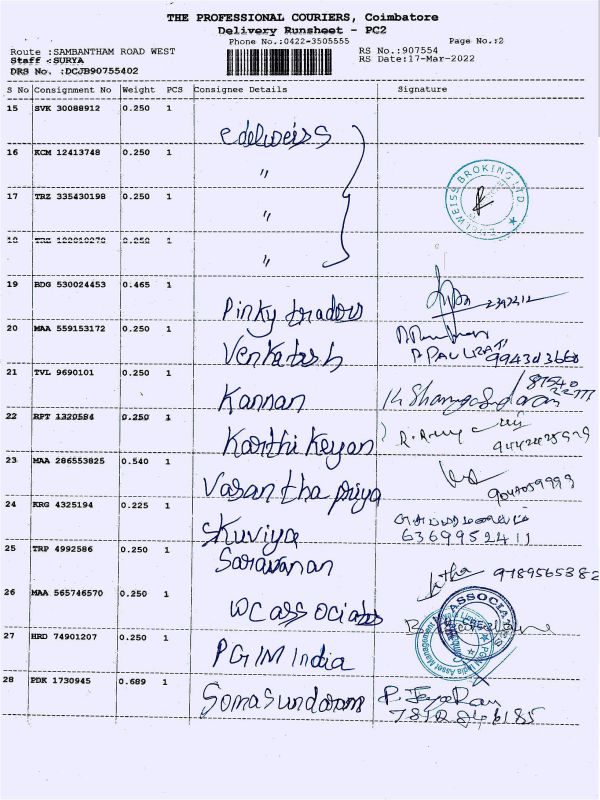 THE PROFESSIONAL COURIERS, Coimbatore
Delivery Runsheet - PC2
Phone No.:0422-3505555
Page No.:2
Route :SAMBANTHAM ROAD WEST
RS No.:907554
Staff :SURYA
RS Date:17-Mar-2022
DRS No. :DCJB90755402
S No Consignment No Weight PCS Consignee Details Signature
15 SVK 30088912 0.250 1
edelweiss
16 KCM 12413748 0.250 1
"
17 TRZ 335430198 0.250 1
"
EDELWEISS BROKING LTD
18 0.250 1
"
19 BDG 530024453 0.465 1
Pinky traders
20 MAA 559153172 0.250 1
Venkatesh
21 TVL 9690101 0.250 1
Kannan
22 RPT 1320584 0.250 1
Karthikeyan
23 MAA 286553825 0.540 1
Vasanthapriya
24 KRG 4325194 0.225 1
Skuviya
6369952411
25 TRP 4992586 0.250 1
Saravanan
9789565382
26 MAA 565746570 0.250 1
WC associates
27 HRD 74901207 0.250 1
PGIM India
28 PDK 1730945 0.689 1
Somasundaram
P. Jeya Ram